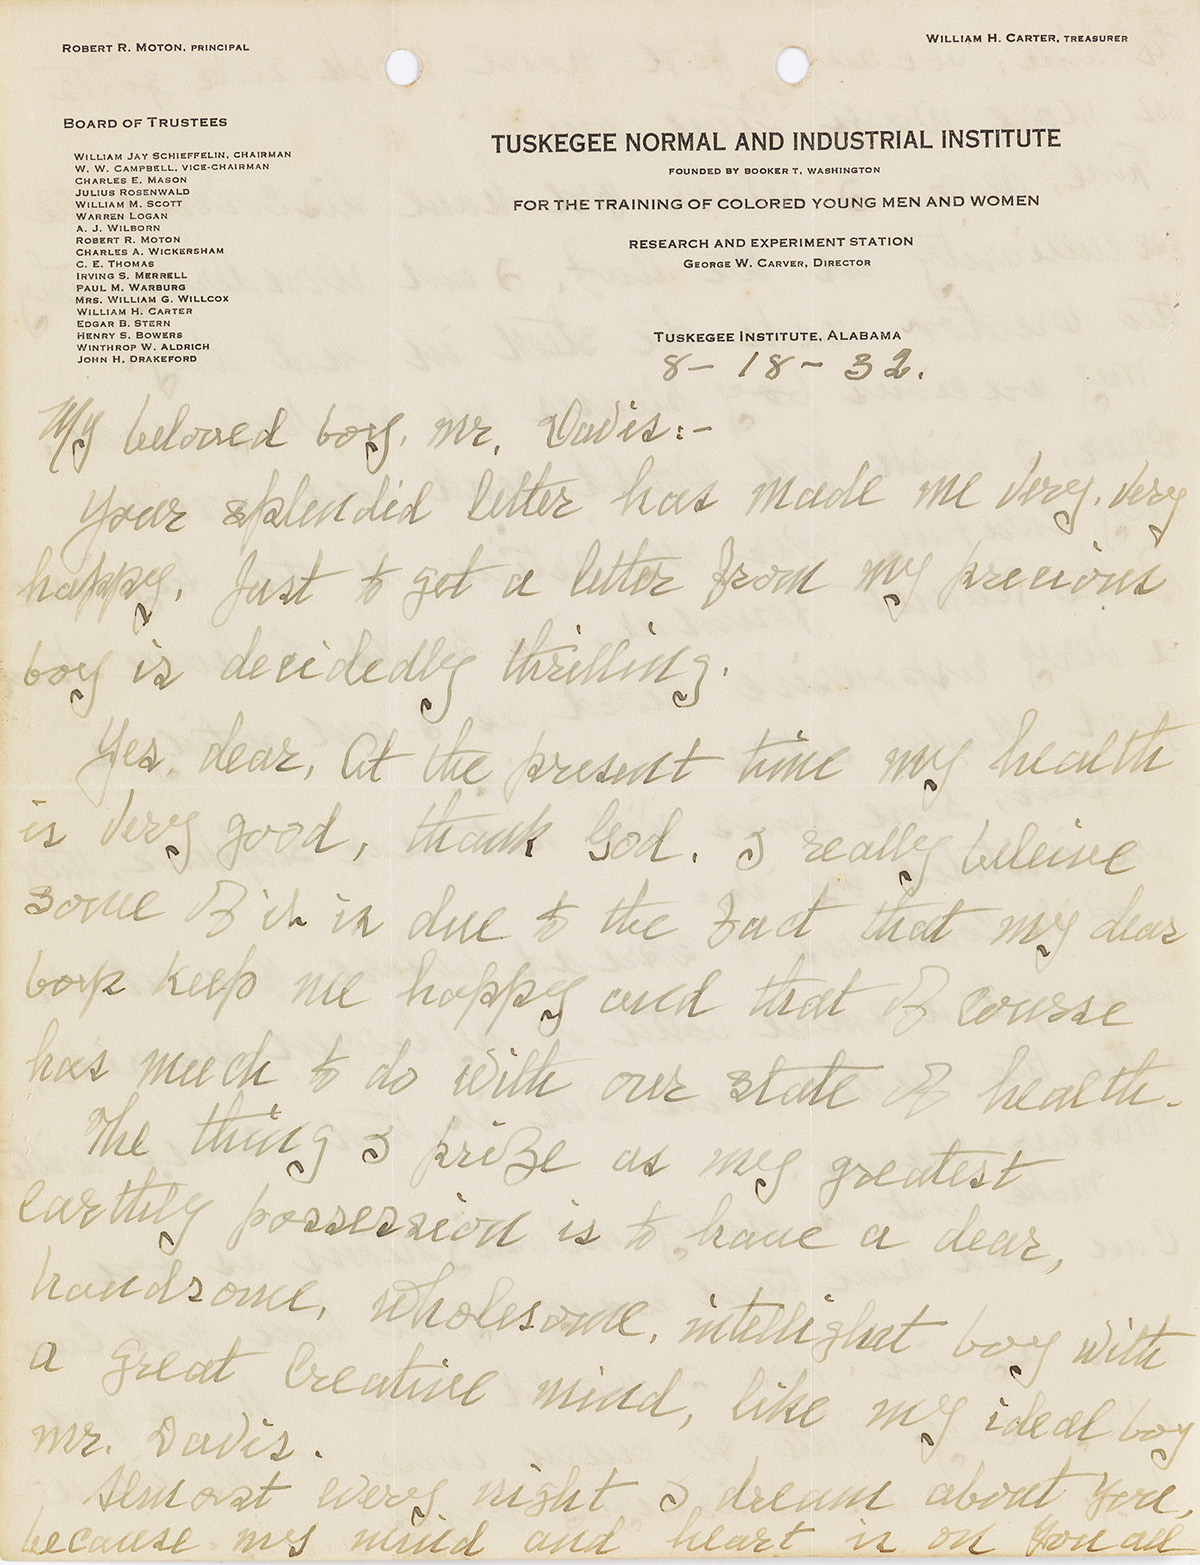 ROBERT R. MOTON, PRINCIPAL
WILLIAM H. CARTER, TREASURER
BOARD OF TRUSTEES
WILLIAM JAY SCHIEFFELIN, CHAIRMAN
W. W. CAMPBELL, VICE-CHAIRMAN
CHARLES E. MASON
JULIUS ROSENWALD
WILLIAM M. SCOTT
WARREN LOGAN
A. J. WILBORN
ROBERT R. MOTON
CHARLES A. WICKERSHAM
C. E. THOMAS
IRVING S. MERRELL
PAUL M. WARBURG
MRS. WILLIAM G. WILLCOX
WILLIAM H. CARTER
EDGAR B. STERN
HENRY S. BOWERS
WINTHROP W. ALDRICH
JOHN H. DRAKEFORD
TUSKEGEE NORMAL AND INDUSTRIAL INSTITUTE
FOUNDED BY BOOKER T. WASHINGTON
FOR THE TRAINING OF COLORED YOUNG MEN AND WOMEN
RESEARCH AND EXPERIMENT STATION
GEORGE W. CARVER, DIRECTOR
TUSKEGEE INSTITUTE, ALABAMA
8-18-32.
My beloved boy, Mr. Davis:-
Your splendid letter has made me very, very
happy. Just to get a letter from my precious
boy is decidedly thrilling.
Yes, dear, at the present time my health
is very good, thank God. I really beleive
some of it is due to the fact that my dear
boys keep me happy and that of course
has much to do with our state of health.
The thing I prize as my greatest
earthly possession is to have a dear,
handsome, wholesome, intellighut boy with
a great Creative mind, like my ideal boy
Mr. Davis.
Almost every night I dream about you,
because my mind and heart is on you all